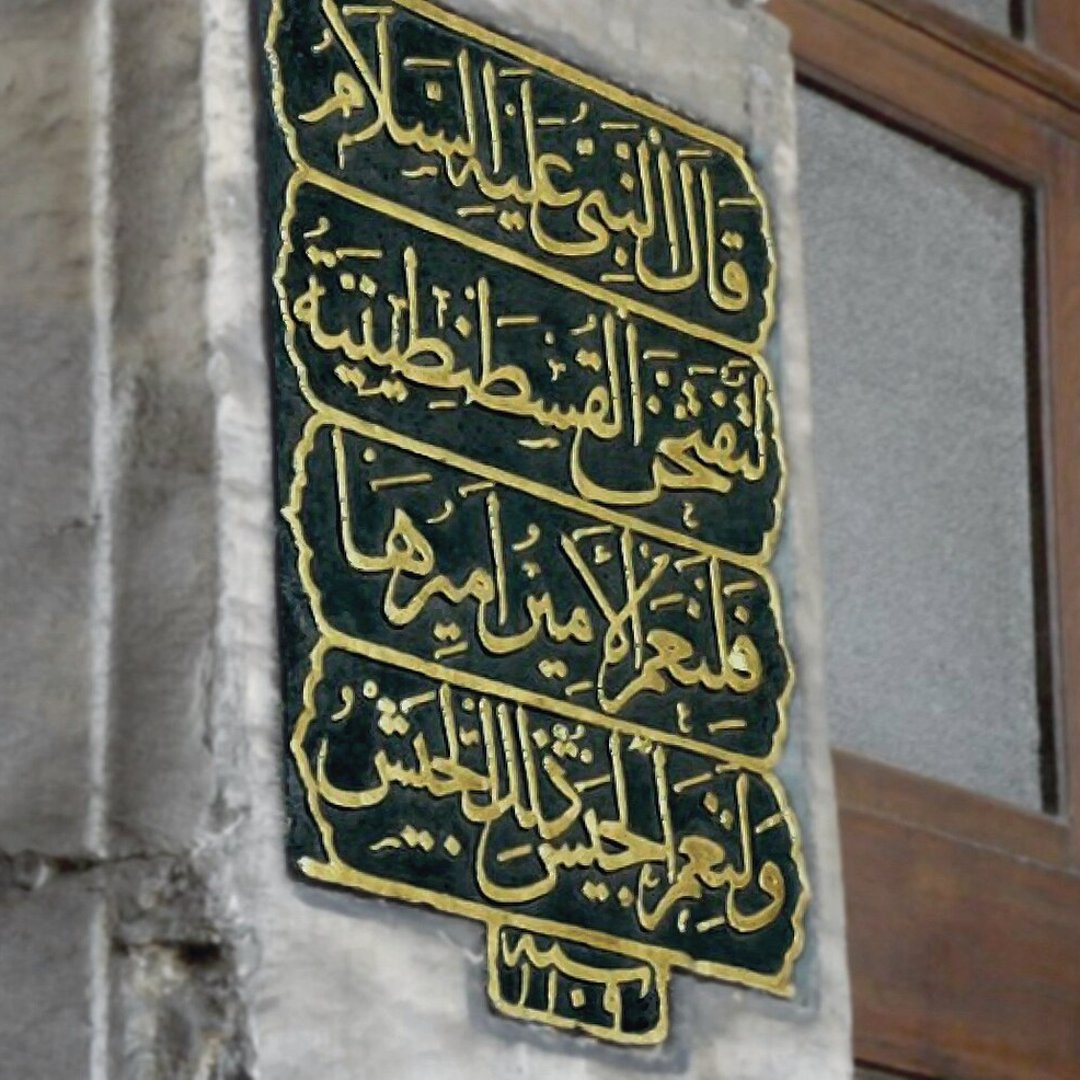 قَالَ النَّبِيُّ عَلَيْهِ السَّلَامُ
لَتُفْتَحَنَّ القُسْطَنْطِينِيَّةُ
فَلَنِعْمَ الأَمِيرُ أَمِيرُهَا
وَلَنِعْمَ الجَيْشُ ذَلِكَ الجَيْشُ
سنه